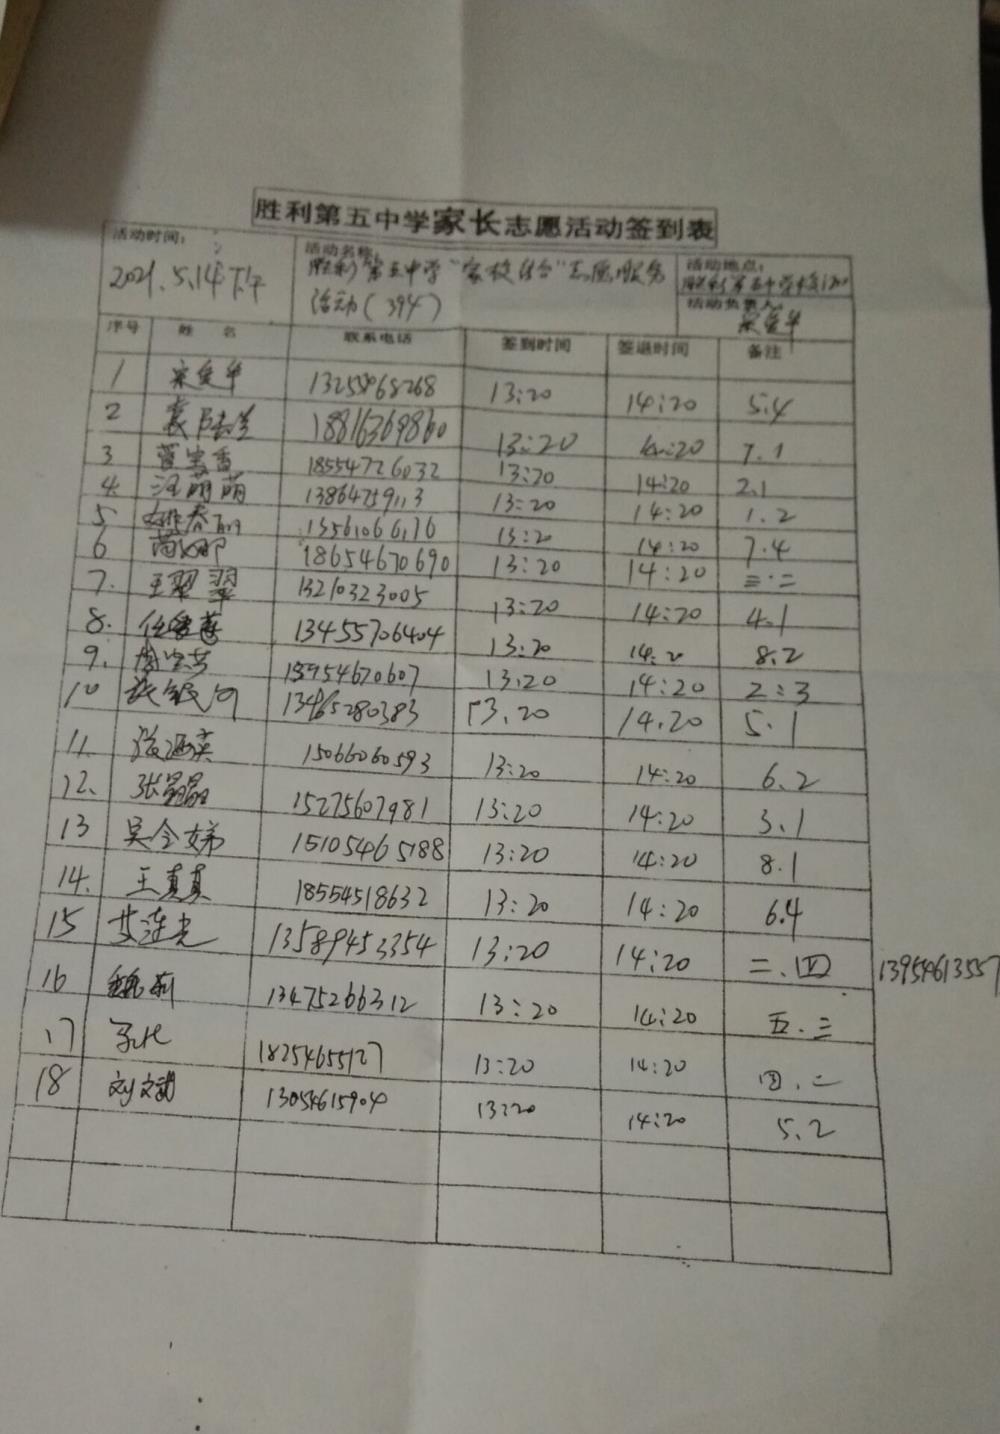 胜利第五中学家长志愿活动签到表
活动时间: 2021.5.14下午
活动名称: 胜利第五中学"家校结合"志愿服务
活动(394)
活动地点: 胜利第五中学
活动负责人:
序号 姓名 联系电话 签到时间 签退时间 备注
1 13:20 14:20 5.4
2 18816369860 13:20 14:20 7.1
3 18554726032 13:20 14:20 2.1
4. 汪萌萌 13864759113 13:20 14:20 1.2
5 姚春丽 13561066176 13:20 14:20 7.4
6 18654670690 13:20 14:20 三.二
7. 王翠翠 13210323005 13:20 14:20 4.1
8. 13455706404 13:20 8.2
9. 13954670607 13:20 14:20 2:3
10 张银河 13465280383 13.20 14.20 5.1
11. 15066060593 13:20 14:20 6.2
12. 张晶晶 15275607981 13:20 14:20 3.1
13 吴令娣 15105465188 13:20 14:20 8.1
14. 王真真 18554518632 13:20 14:20 6.4
15 13589452354 13:20 14:20 二.四 13954613557
16 魏莉 13475266312 13:20 14:20 五.三
17 18254655127 13:20 14:20 四.二
18 刘文斌 13054615904 13:20 14:20 5.2